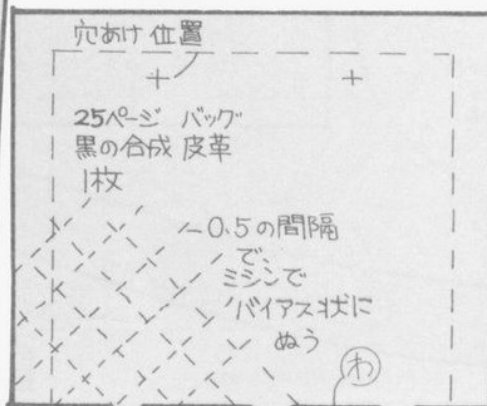 穴あけ位置
25ページ バッグ
黒の合成皮革
1枚
0.5の間隔
で、
ミシンで
バイアス状に
ぬう
わ